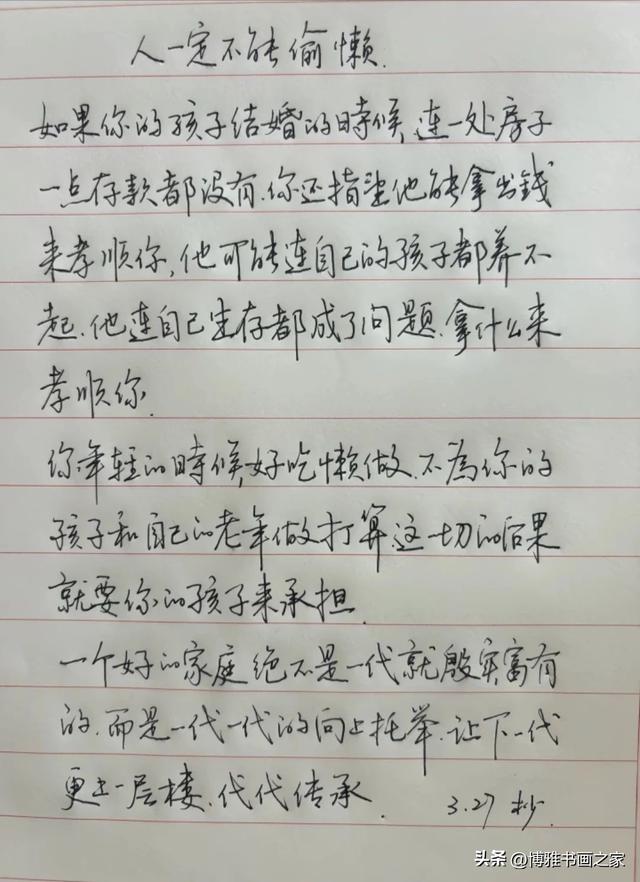 人一定不能偷懒.
如果你的孩子结婚的時候,连一处房子
一点存款都没有.你还指望他能拿出錢
来孝顺你,他可能连自己的孩子都养不
起.他连自己生存都成了问题.拿什么来
孝顺你.
你年轻的時候,好吃懒做.不為你的
孩子和自己的老年做打算.这一切的后果
就要你的孩子来承担.
一个好的家庭绝不是一代就殷实富有
的.而是一代一代的向上托举.让下一代
更上一层楼、代代传承.
3.27 抄.
头条 @博雅书画之家